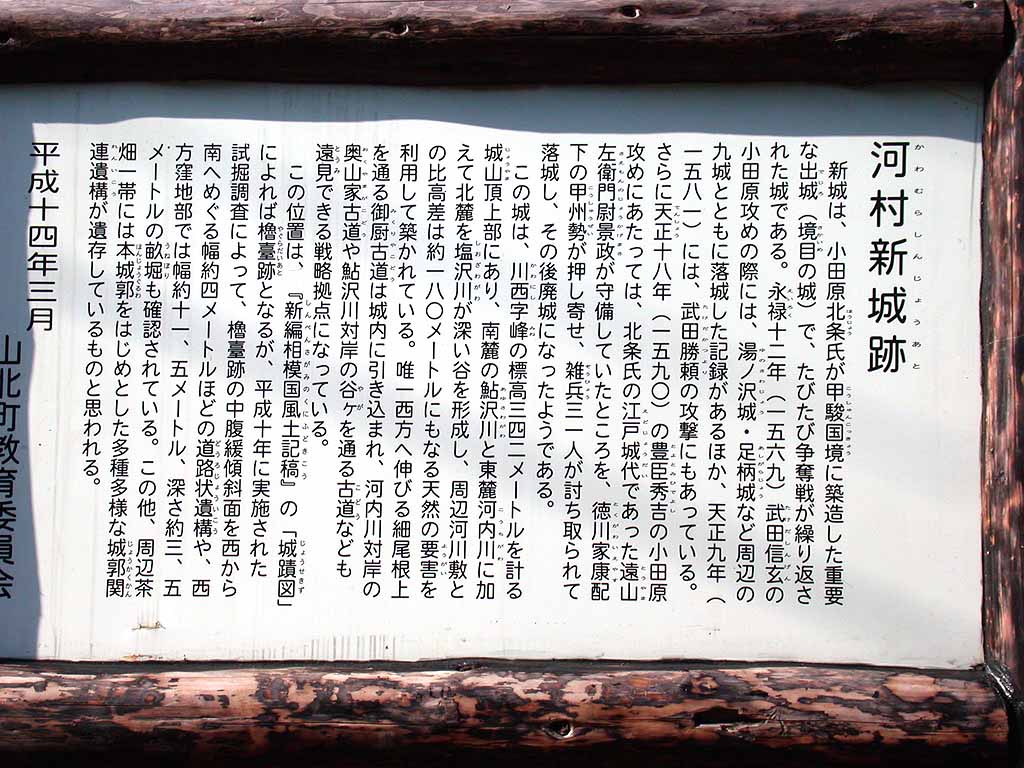 河村新城跡
新城は、小田原北条氏が甲駿国境に築造した重要
な出城（境目の城）で、たびたび争奪戦が繰り返さ
れた城である。永禄十二年（一五六九）武田信玄の
小田原攻めの際には、湯ノ沢城・足柄城など周辺の
九城とともに落城した記録があるほか、天正九年（
一五八一）には、武田勝頼の攻撃にもあっている。
さらに天正十八年（一五九〇）の豊臣秀吉の小田原
攻めにあたっては、北条氏の江戸城代であった遠山
左衛門尉景政が守備していたところを、徳川家康配
下の甲州勢が押し寄せ、雑兵三一人が討ち取られて
落城し、その後廃城になったようである。
この城は、川西字峰の標高三四二メートルを計る
城山頂上部にあり、南麓の鮎沢川と東麓河内川に加
えて北麓を塩沢川が深い谷を形成し、周辺河川敷と
の比高差は約一八〇メートルにもなる天然の要害を
利用して築かれている。唯一西方へ伸びる細尾根上
を通る御厨古道は城内に引き込まれ、河内川対岸の
奥山家古道や鮎沢川対岸の谷ヶを通る古道なども
遠見できる戦略拠点になっている。
この位置は、『新編相模国風土記稿』の「城蹟図」
によれば櫓臺跡となるが、平成十年に実施された
試掘調査によって、櫓臺跡の中腹緩傾斜面を西から
南へめぐる幅約四メートルほどの道路状遺構や、西
方窪地部では幅約十一、五メートル、深さ約三、五
メートルの畝堀も確認されている。この他、周辺茶
畑一帯には本城郭をはじめとした多種多様な城郭関
連遺構が遺存しているものと思われる。
平成十四年三月
山北町教育委員会